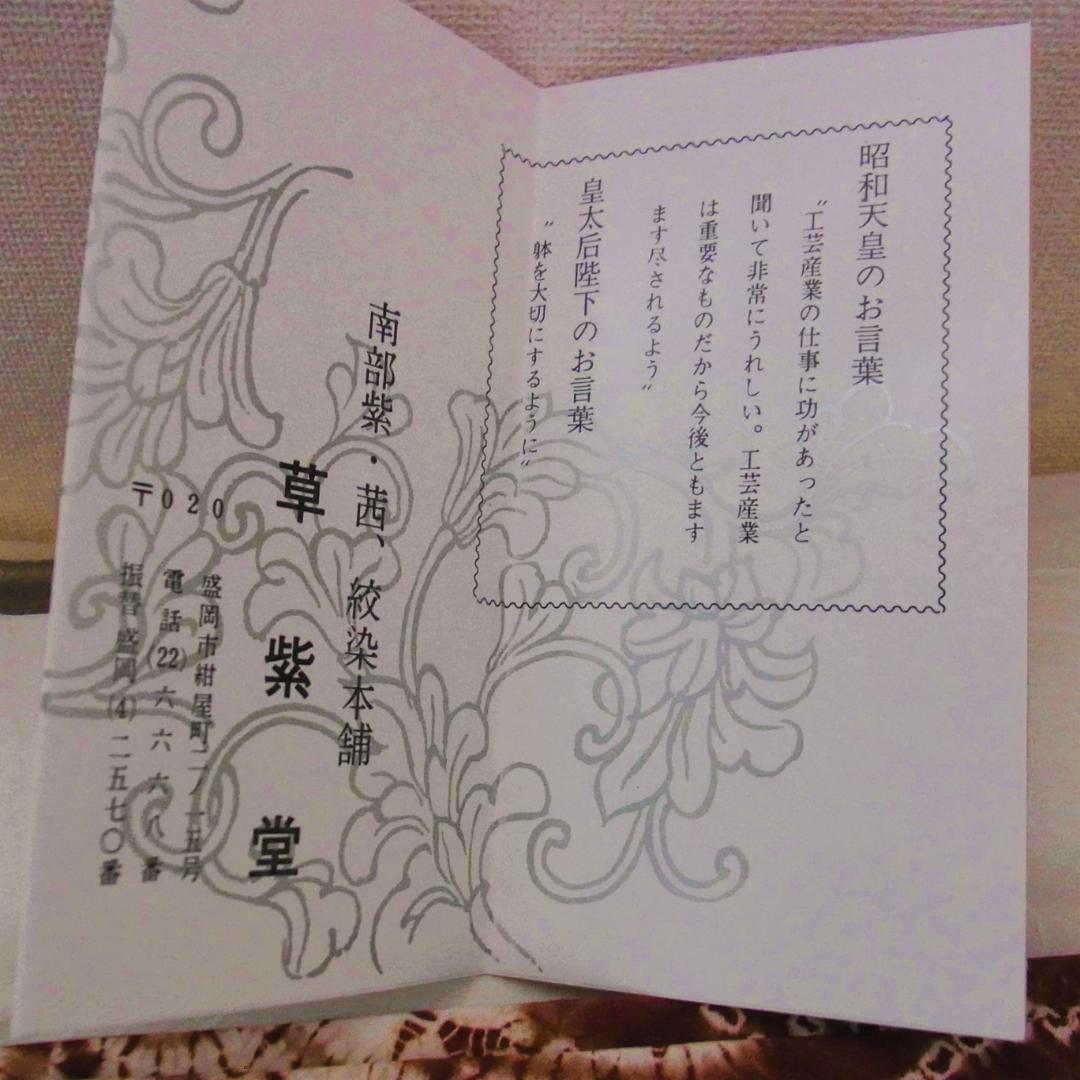 昭和天皇のお言葉
〝工芸産業の仕事に功があったと
聞いて非常にうれしい。工芸産業
は重要なものだから今後ともます
ます尽されるよう〟
皇太后陛下のお言葉
〝躰を大切にするように〟
南部紫・茜、絞染本舗
草紫堂
〒020
盛岡市紺屋町二ノ一五号
電話(22)六六六八番
振替盛岡(4)二五七〇番